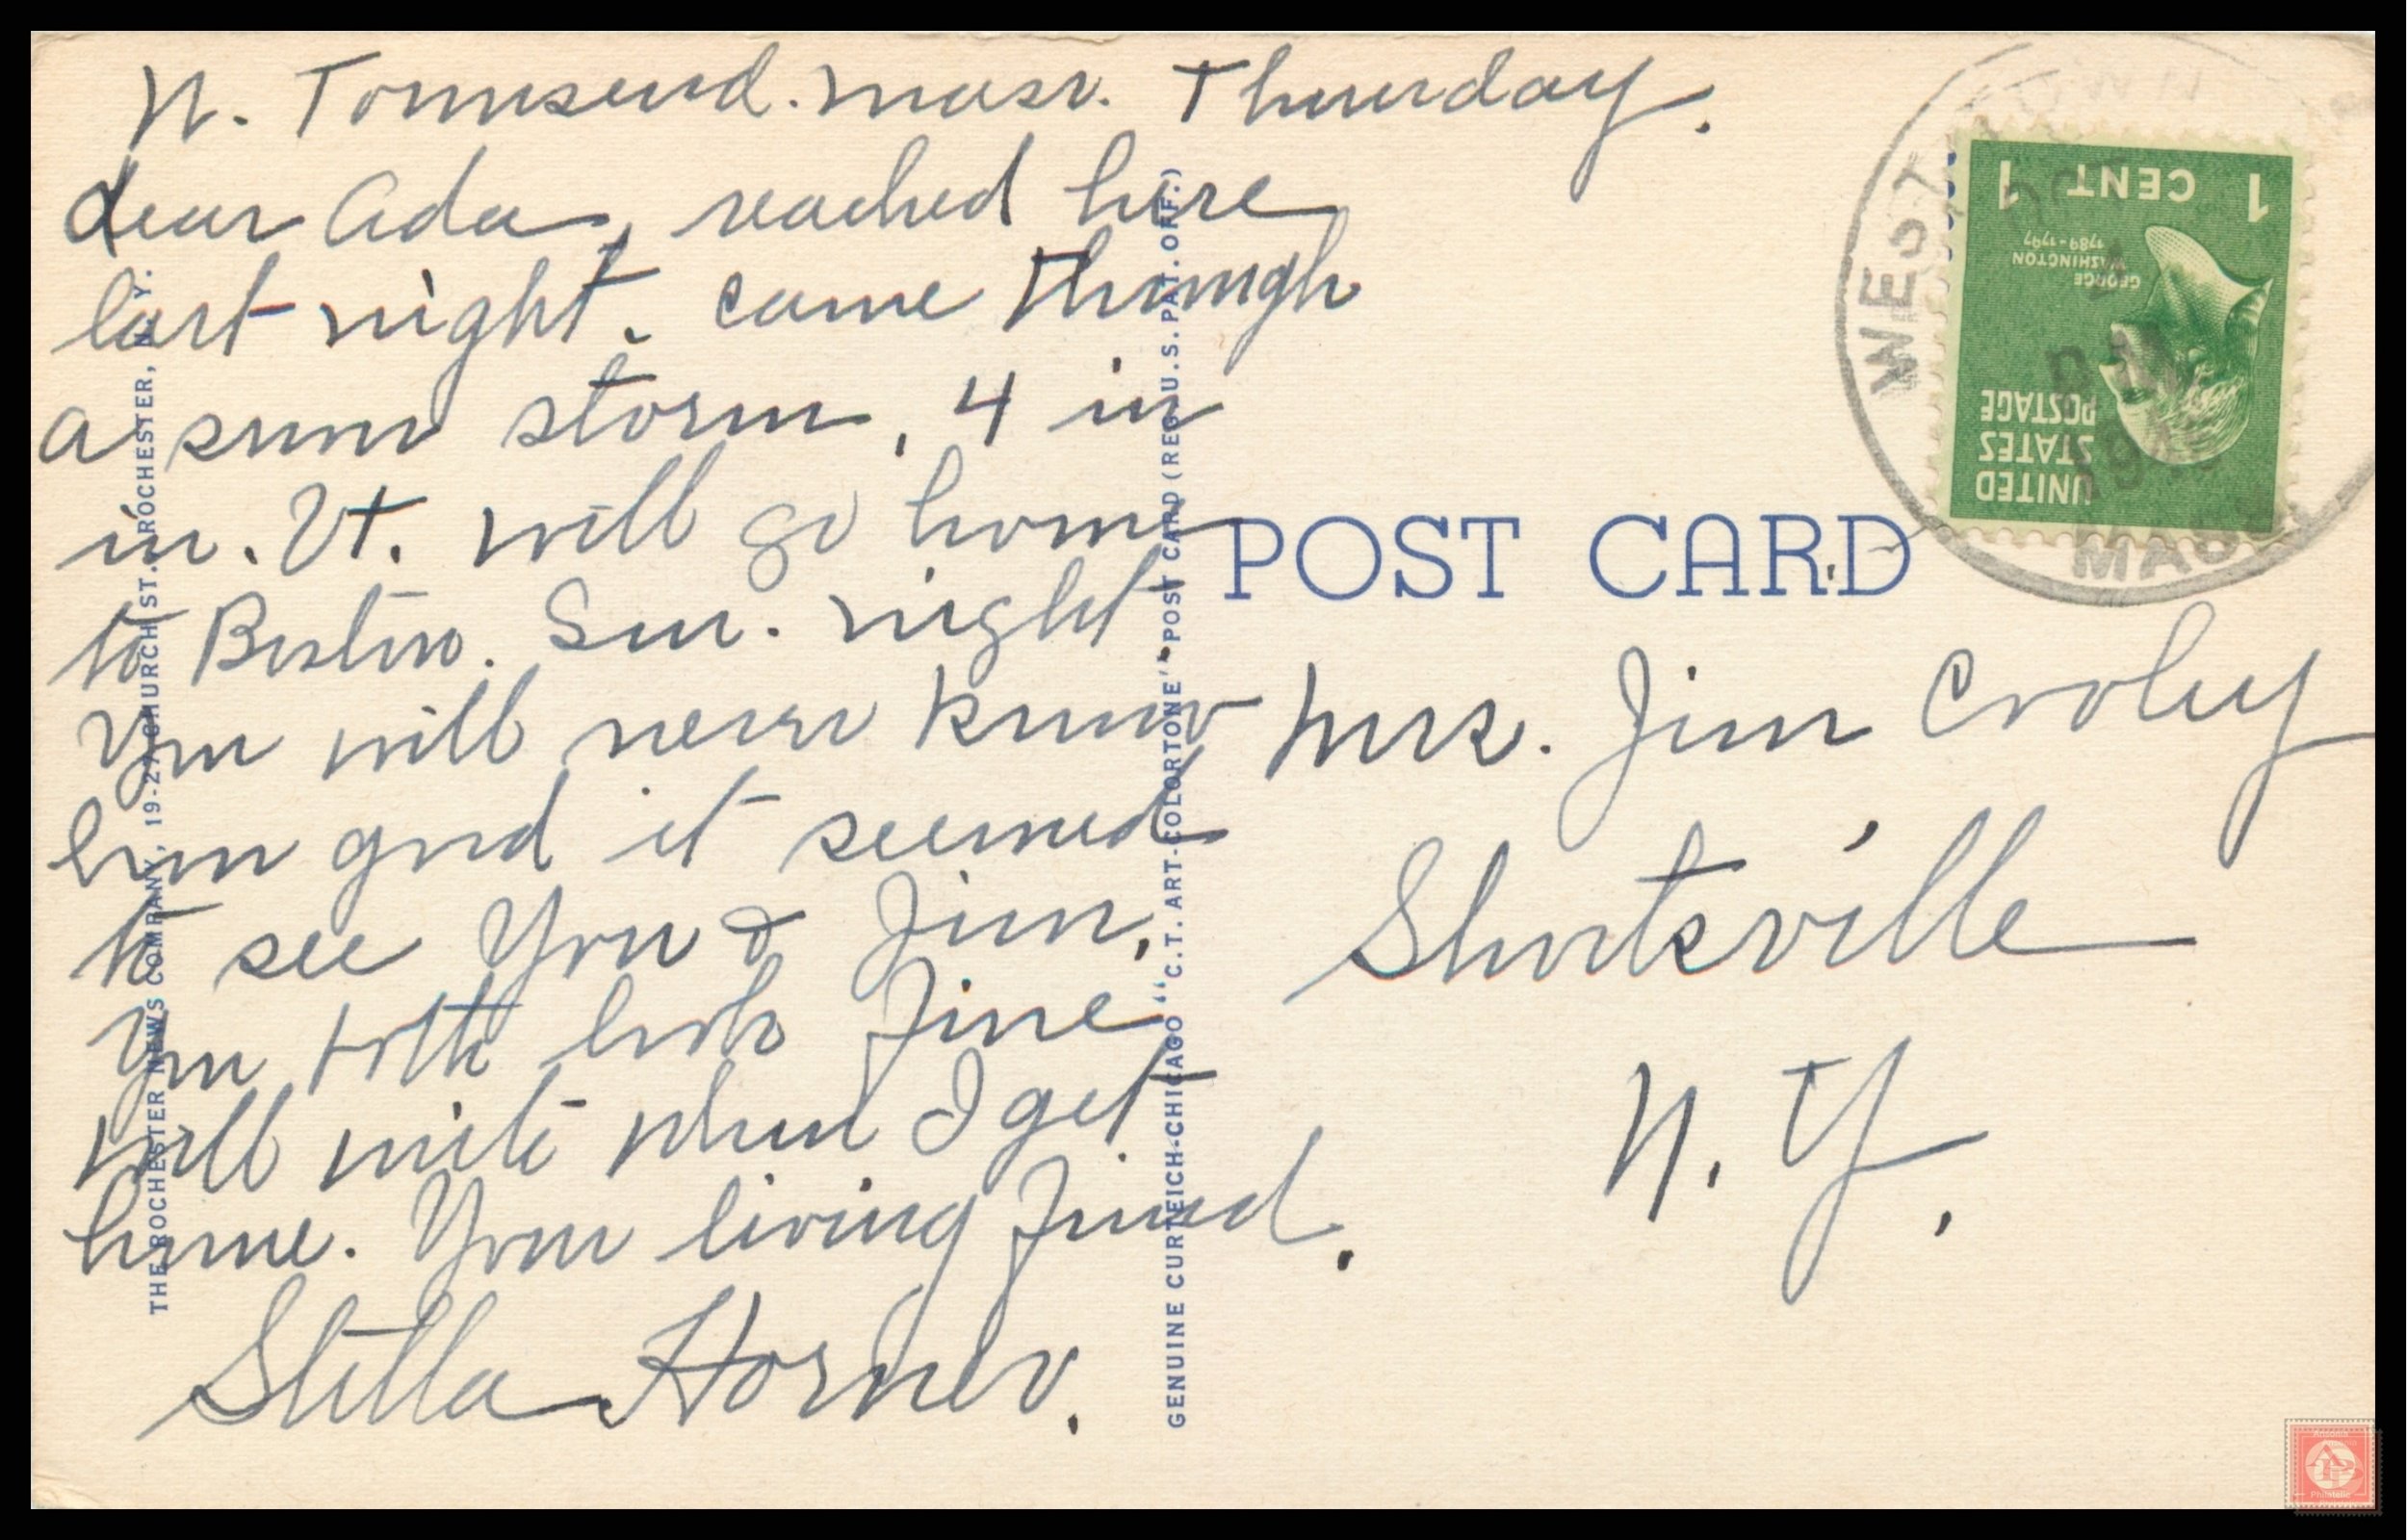 W. Townsend. Mass. Thursday.
dear Ada, reached here
last night. came through
a snow storm, 4 in
in. Vt. will go home
to Boston. Sun. night
You will never know
how good it seemed
to see You & Jim,
You both look fine
will write when I get
home. Your loving friend.
Stella Horner.
POST CARD
Mrs. Jim Croley
Shortsville
N. Y.
THE ROCHESTER NEWS COMPANY, 19-27 CHURCH ST., ROCHESTER, N. Y.
GENUINE CURTEICH-CHICAGO "C.T. ART-COLORTONE" POST CARD (REG. U.S. PAT. OFF.)
1 CENT 1
GEORGE
WASHINGTON
1789-1797
UNITED
STATES
POSTAGE
WEST
PM
MASS